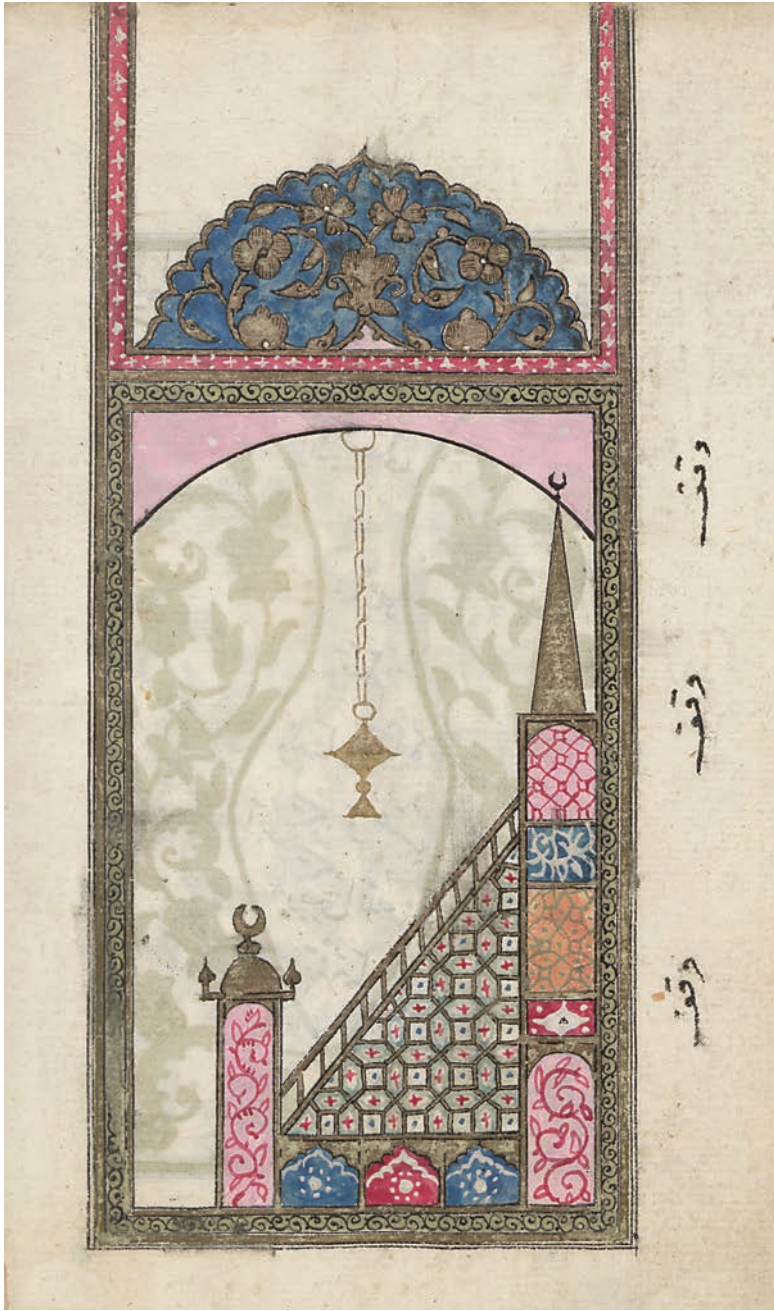 وقف
وقف
وقف